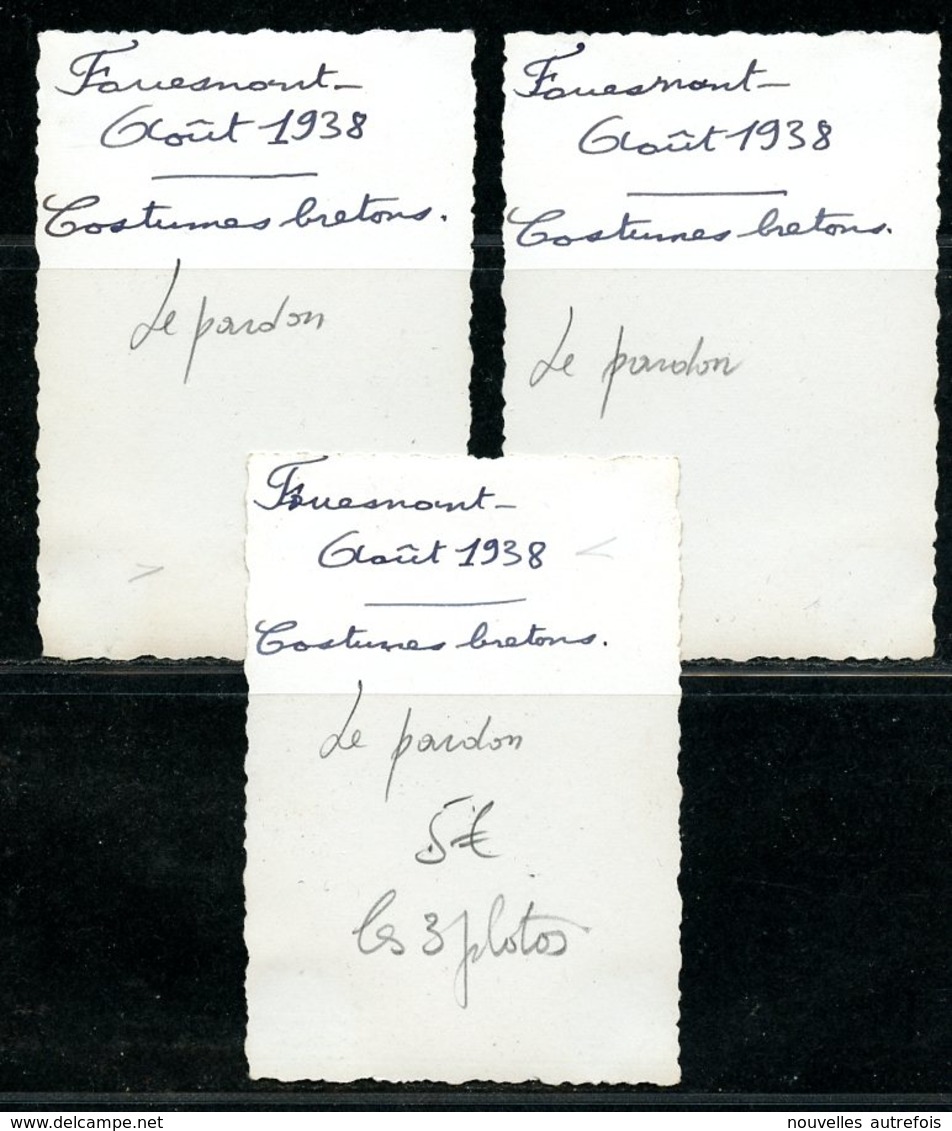 Fouesnant-
Août 1938
Costumes bretons.
Le pardon
Fouesnant-
Août 1938
Costumes bretons.
Le pardon
Fouesnant-
Août 1938
Costumes bretons.
Le pardon
5€
les 3 photos
nouvelles autrefois